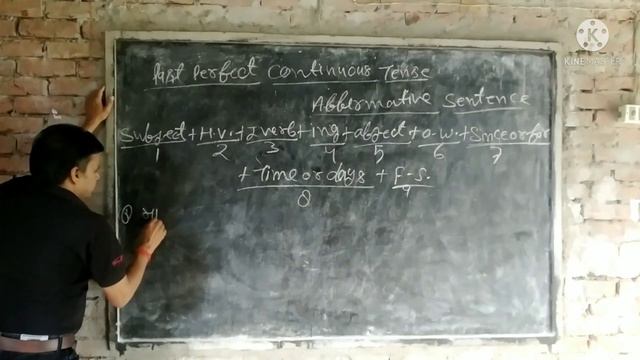 Past Perfect Continuous Tense
Affirmative Sentence
Subject + H.V. + I verb + ing + object + o.w. + Since or for
1 2 3 4 5 6 7
+ Time or days + F.S.
8 9
KINEMASTER